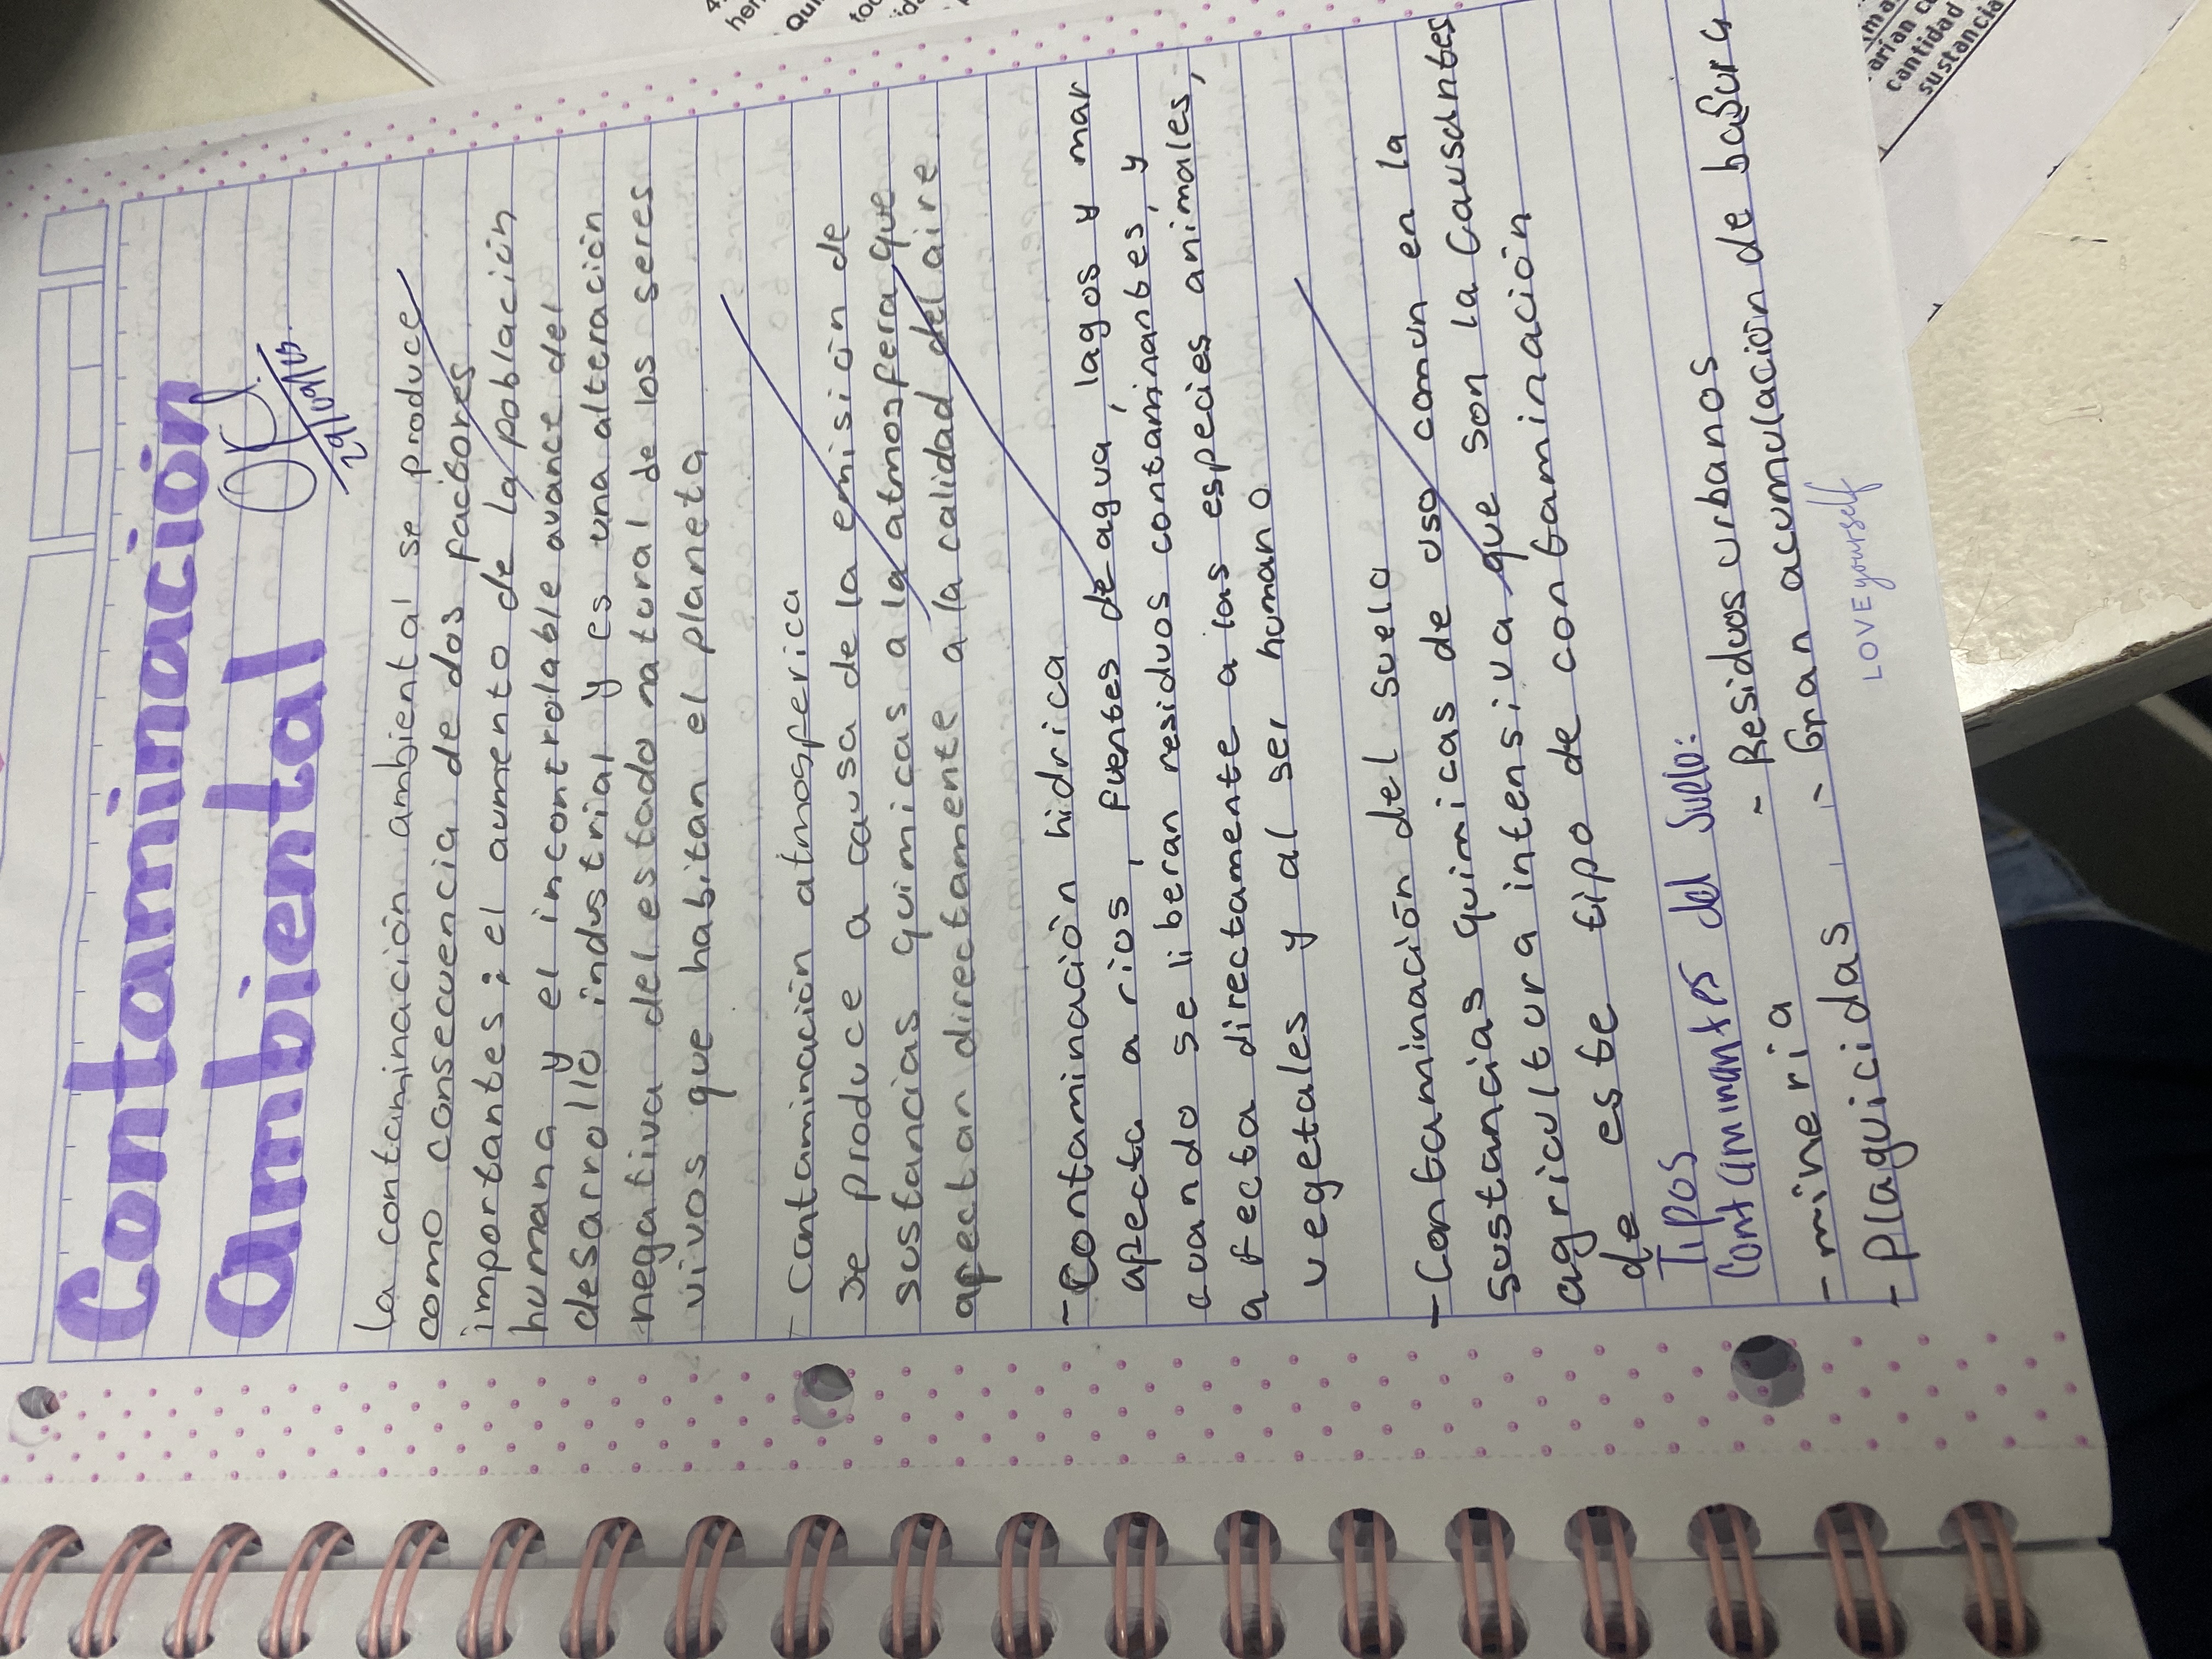 Contaminación
Ambiental
29/09/15
La contaminación ambiental se produce
como consecuencia de dos factores
importantes; el aumento de la población
humana y el incontrolable avance del
desarrollo industrial y es una alteración
negativa del estado natural de los seres
vivos que habitan el planeta
- Contaminación atmosferica
se produce a causa de la emisión de
sustancias quimicas a la atmosfera que
afectan directamente a la calidad del aire
- Contaminación hidrica
afecta a rios, fuentes de agua, lagos y mar
cuando se liberan residuos contaminantes, y
afecta directamente a las especies animales,
vegetales y al ser humano
- Contaminación del suelo
Sustancias quimicas de uso comun en la
agricultura intensiva que son la causantes
de este tipo de contaminación
Tipos
Contaminantes del suelo:
- mineria - Residuos urbanos
- Plaguicidas - Gran acumulación de basura
LOVE yourself
cantidad
sustancia